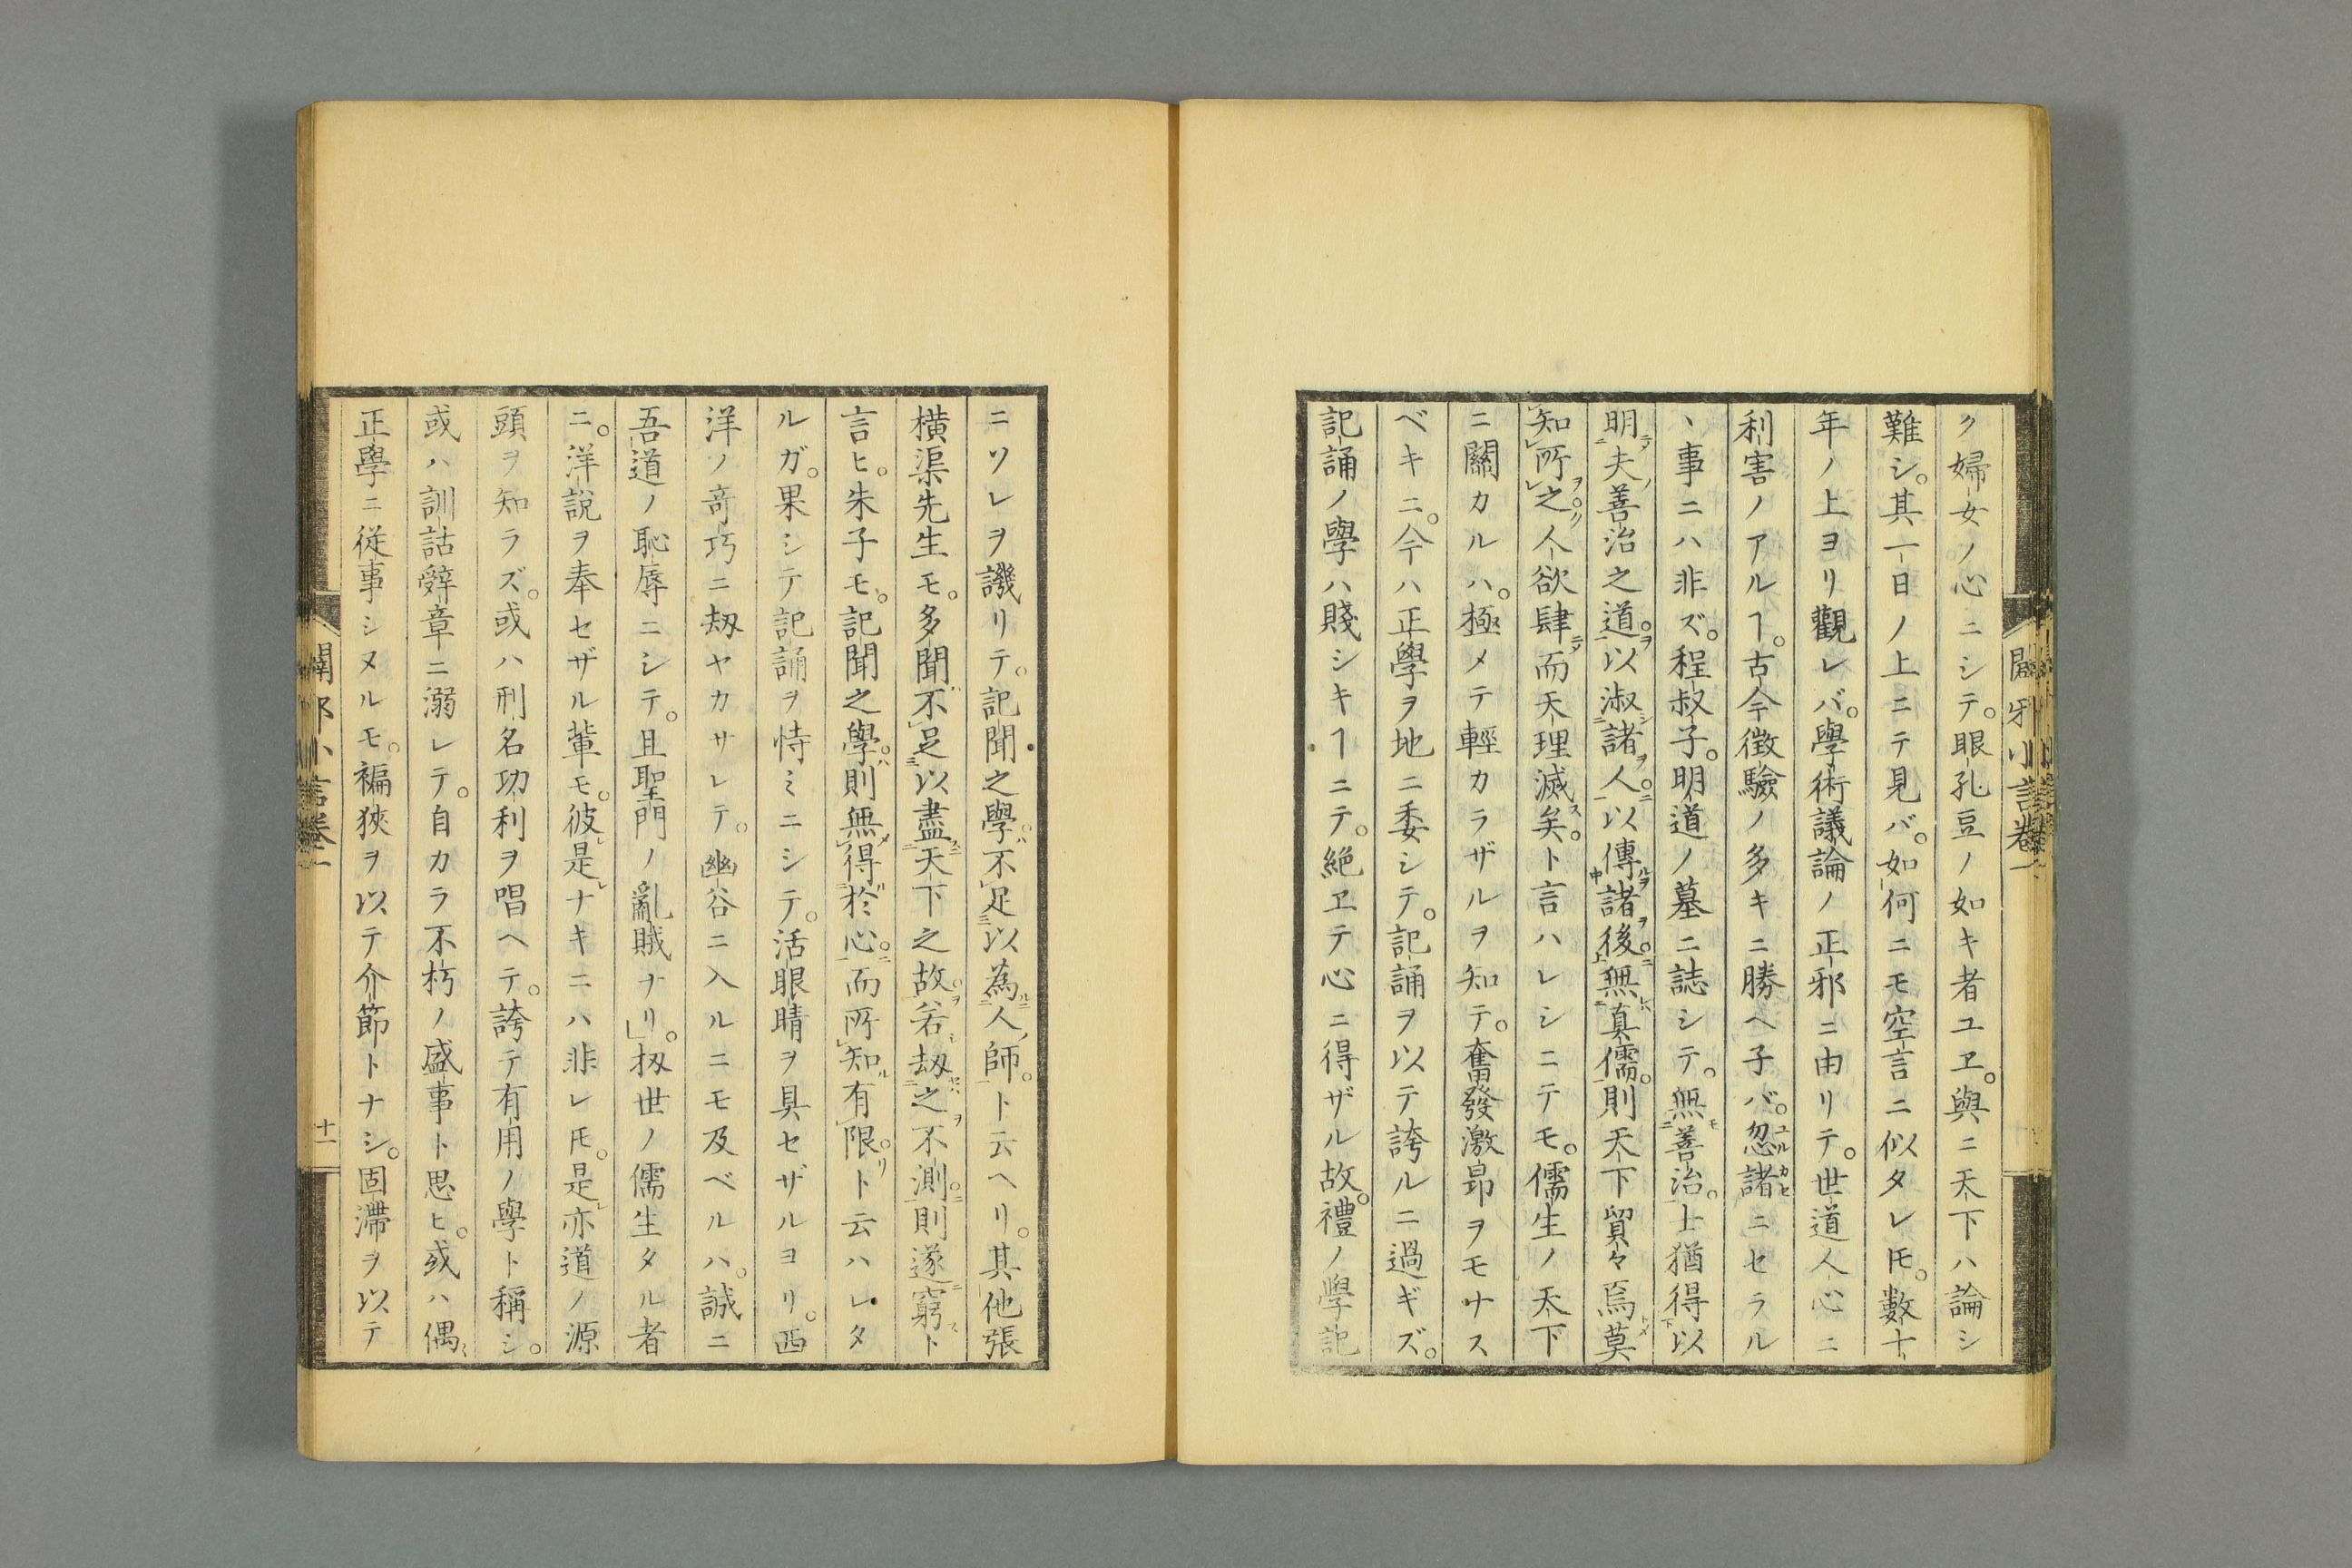 ク婦女ノ心ニシテ。眼孔豆ノ如キ者ユヱ。與ニ天下ハ論シ
難シ。其一日ノ上ニテ見バ。如何ニモ空言ニ似タレ𪜈。數十
年ノ上ヨリ觀レバ。學術議論ノ正邪ニ由リテ。世道人心ニ
利害ノアルヿ。古今徴驗ノ多キニ勝ヘ子バ。忽諸ニセラル
ヽ事ニハ非ズ。程叔子。明道ノ墓ニ誌シテ。無善治。士猶得以
明夫善治之道。以淑諸人。以傳諸後。無真儒。則天下貿々焉莫
知所之。人欲肆而天理滅矣。ト言ハレシニテモ。儒生ノ天下
ニ關カルハ。極メテ輕カラザルヲ知テ。奮發激昻ヲモナス
ベキニ。今ハ正學ヲ地ニ委シテ。記誦ヲ以テ誇ルニ過ギズ。
記誦ノ學ハ賤シキヿニテ。絶ヱテ心ニ得ザル故。禮ノ學記
ニソレヲ譏リテ。記聞之學。不足以為人師。ト云ヘリ。其他張
横渠先生モ。多聞不足以盡天下之故。若劫之不測。則遂窮ト
言ヒ。朱子モ。記聞之學。則無得於心。而所知有限。ト云ハレタ
ルガ。果シテ記誦ヲ恃ミニシテ。活眼晴ヲ具セザルヨリ。西
洋ノ竒巧ニ劫ヤカサレテ。幽谷ニ入ルニモ及ベルハ。誠ニ
吾道ノ恥辱ニシテ。且聖門ノ亂賊ナリ」。扨世ノ儒生タル者
ニ。洋説ヲ奉セザル輩モ。彼是ナキニハ非レ𪜈。是亦道ノ源
頭ヲ知ラズ。或ハ刑名功利ヲ唱ヘテ。誇テ有用ノ學ト稱シ。
或ハ訓詁辭章ニ溺レテ。自カラ不朽ノ盛事ト思ヒ。或ハ偶〻
正學ニ從事シヌルモ。褊狹ヲ以テ介節トナシ。固滯ヲ以テ
闢邪小言卷一
十一